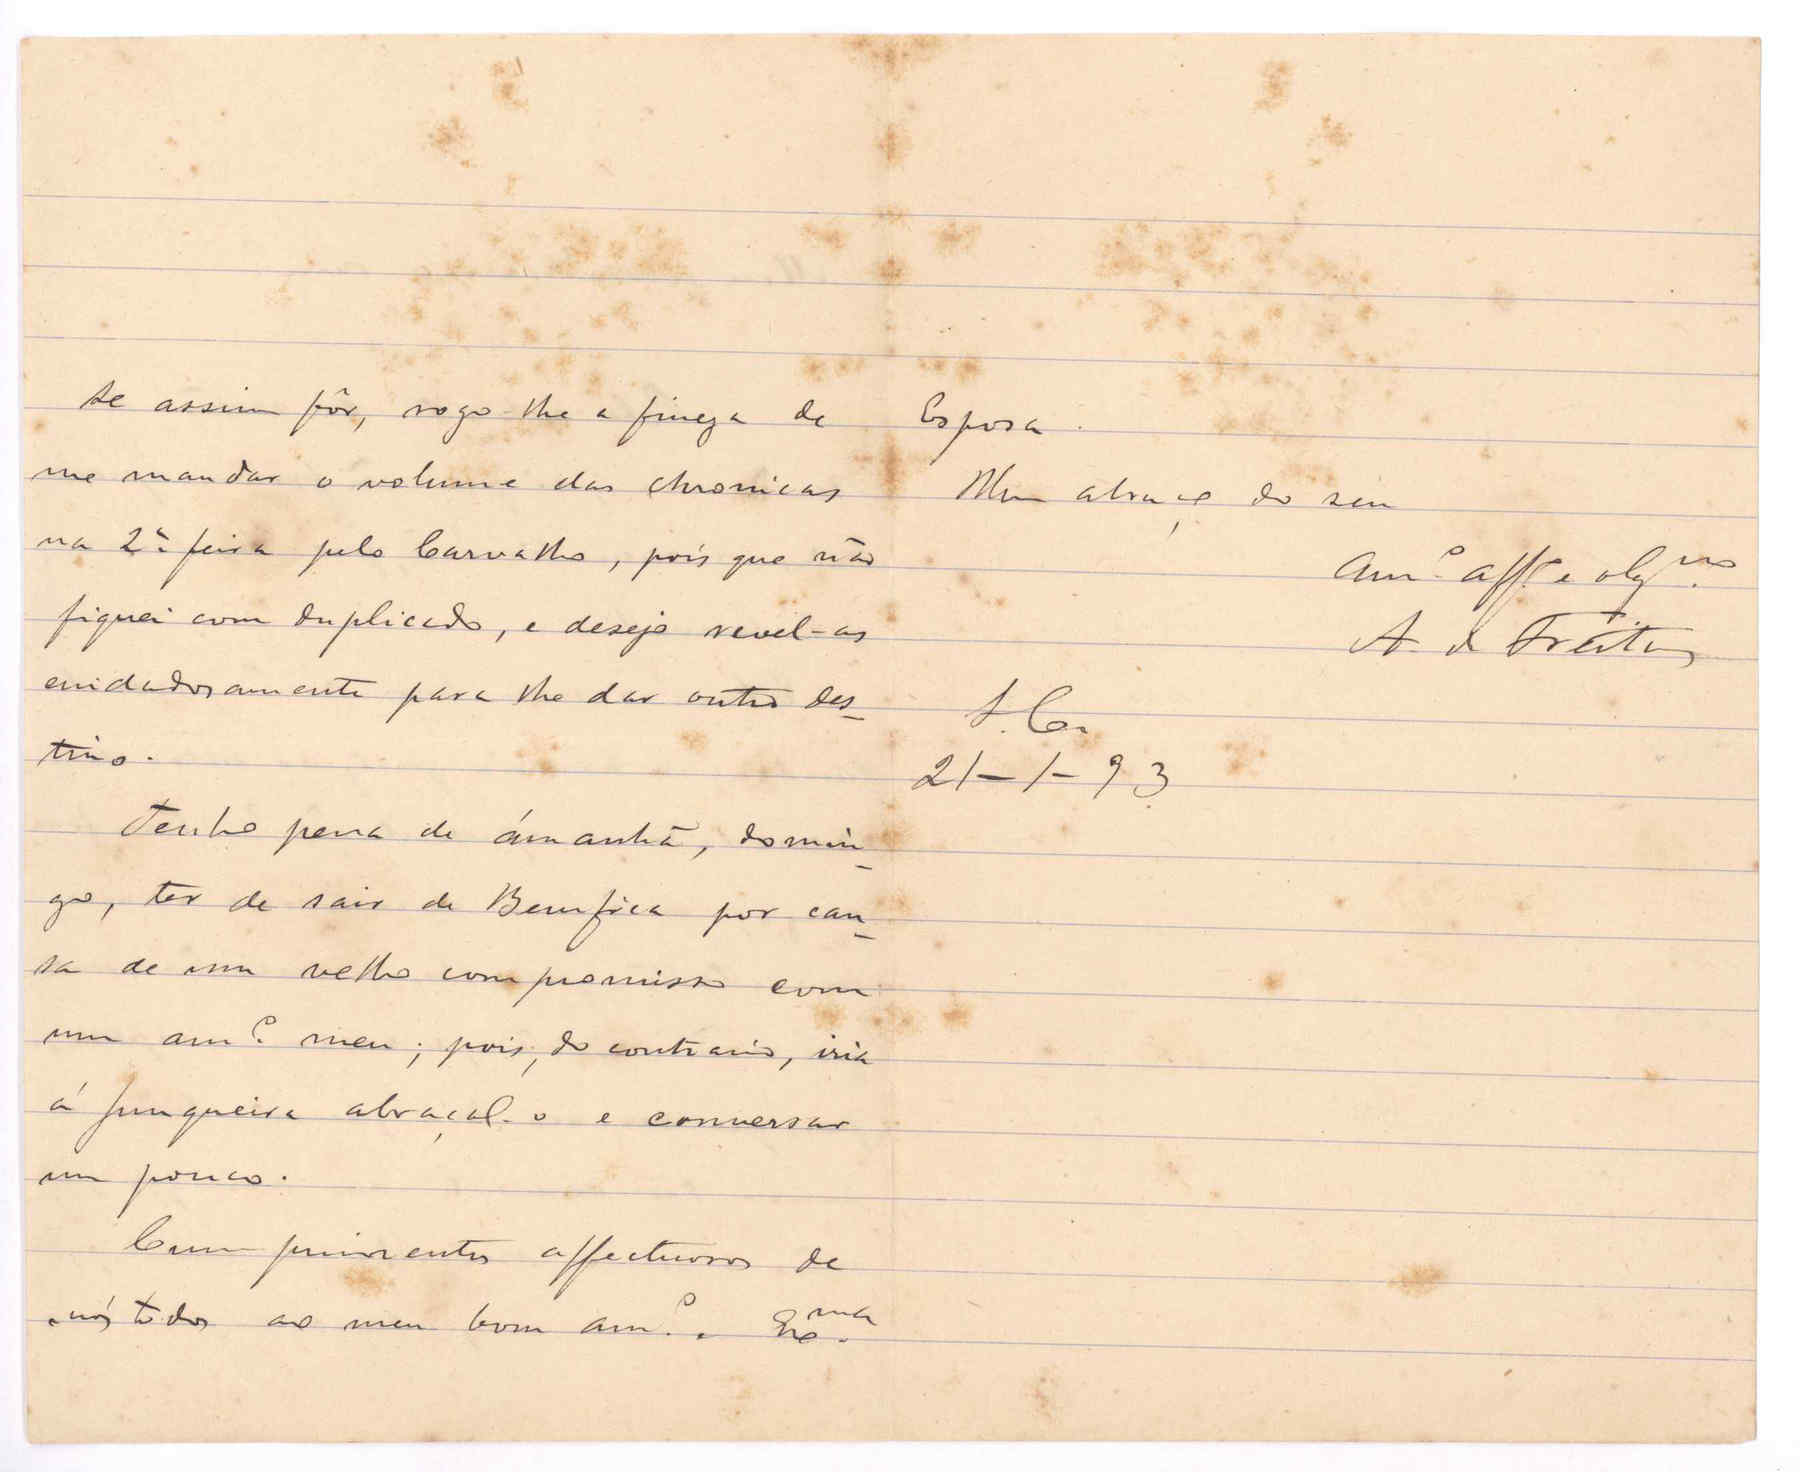 se assim fôr, rogo-lhe a fineza de
me mandar o volume das chronicas
na 2ª feira pelo Carvalho, pois que não
fiquei com duplicado, e desejo revel-as
cuidadosamente para lhe dar outro des-
tino.
Tenho pena de ámanhã, domin-
go, ter de sair de Bemfica por cau-
sa de um velho compromisso com
um am.º meu; pois, do contrario, iria
á Junqueira abraçal-o e conversar
um pouco.
Cumprimentos affectuosos de
nós todos ao meu bom am.º e Ex.ma
Esposa.
Um abraço do seu
Am.º aff.º e obg.mo
A. de Freitas
S. C.
21-1-93